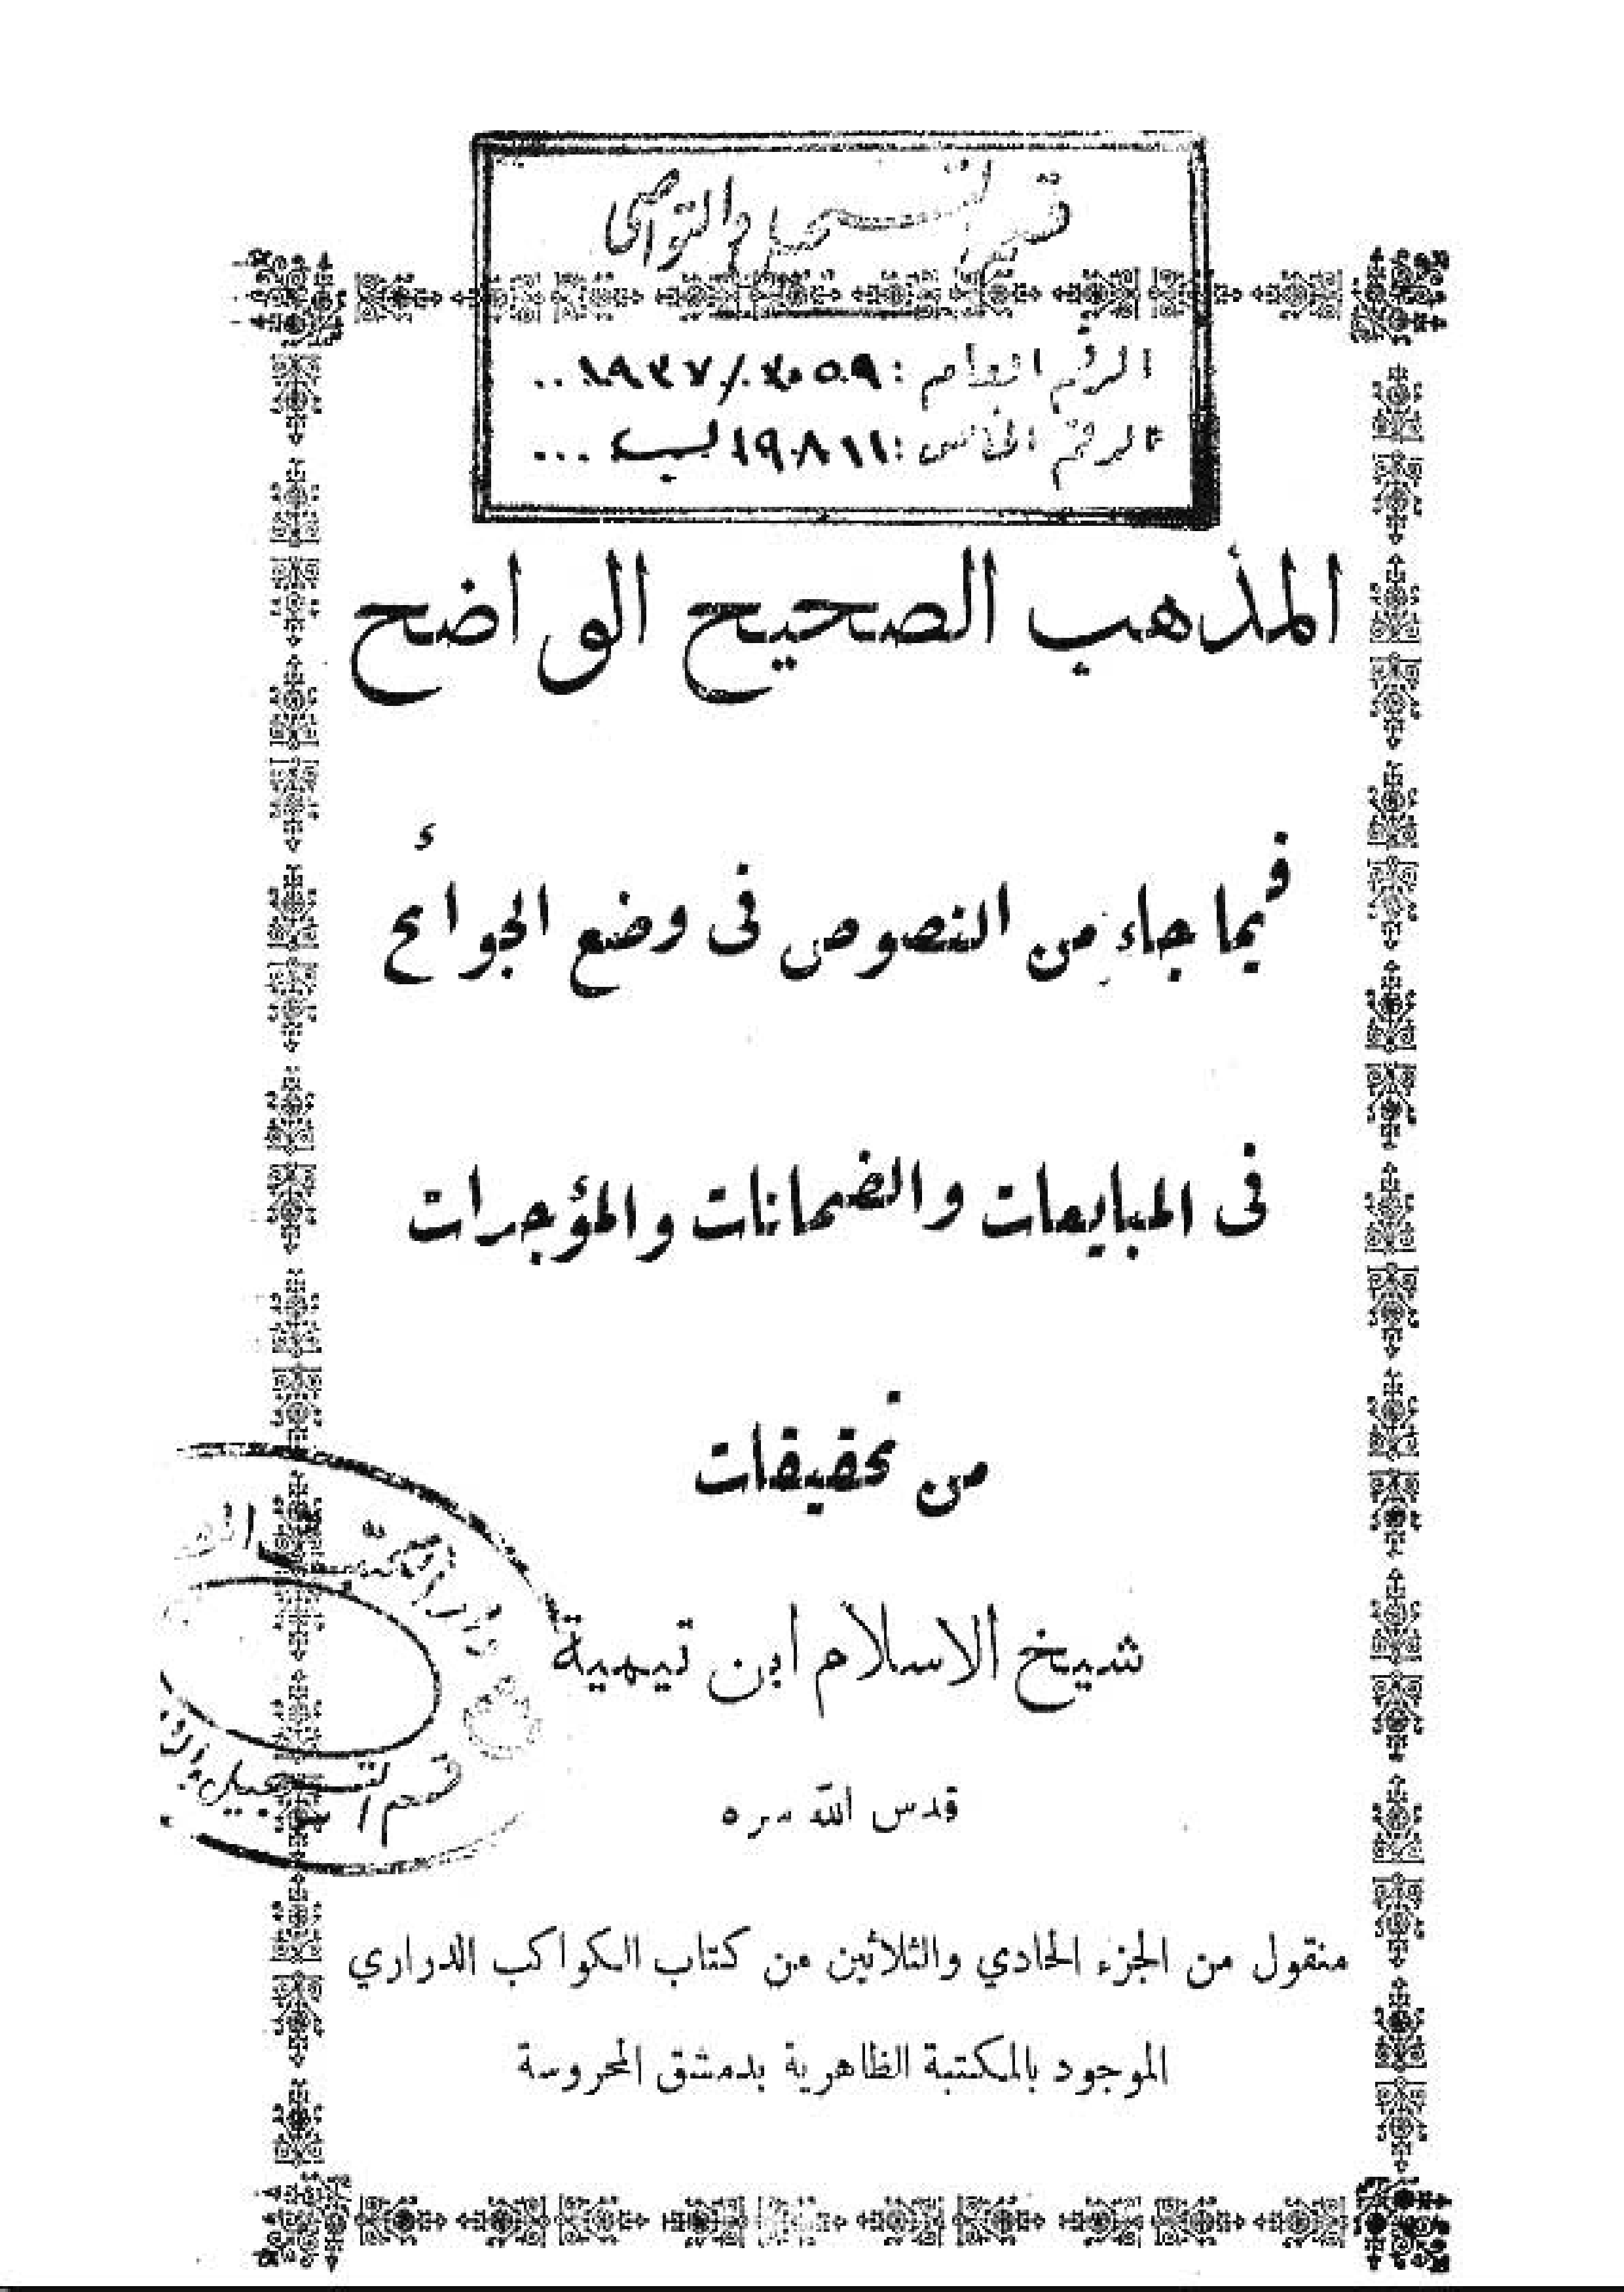 الرقم العام :
الرقم الخاص : ١٩٨١١ ب ...
المذهب الصحيح الواضح
فيما جاء من النصوص فى وضع الجوائح
فى المبايعات والضمانات والمؤجرات
من تحقيقات
شيخ الاسلام ابن تيمية
قدس الله سره
منقول من الجزء الحادي والثلاثين من كتاب الكواكب الدراري
الموجود بالمكتبة الظاهرية بدمشق المحروسة
دار الكتب
قسم التسجيل